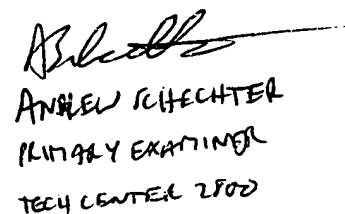 ANDREW SCHECHTER
PRIMARY EXAMINER
TECH CENTER 2800